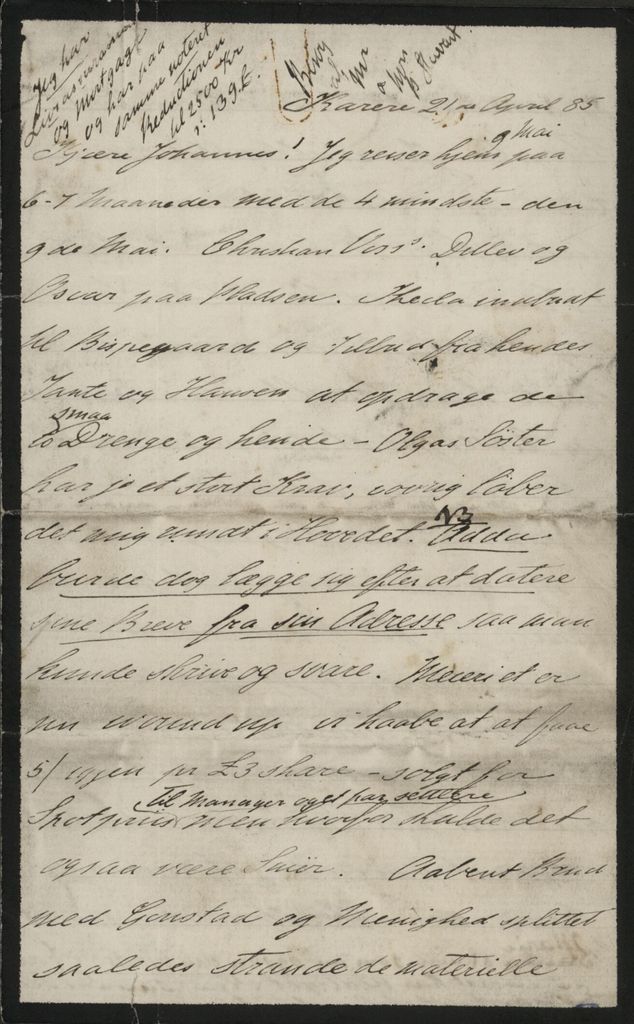 Jeg har
Livsassurance
og Mortgage
og har paa
samme noteret
Reductionen
til 2500 Kr
: 139 £.
Mr
Mrs
Karere 21 de April 85
Kjære Johannes! Jeg reiser hjem 9 Mai paa
6-7 Maaneder med de 4 mindste - den
9de Mai. Christian Detlev og
Oscar paa Pladsen. Thecla indbudt
til Bispegaard og Tilbud fra hendes
Tante og Hansen at opdrage de
to smaa Drenge og hende - Olgas Söster
har jo et stort Krav, løber
det mig rundt i Hovedet. NB Adda
burde dog lægge sig efter at datere
sine Breve fra sin Adresse saa man
kunde skrive og svare. Meieriet er
nu wound up vi haabe at at faae
5/ igjen pr £3 share - solgt for
Spotpriis til Manager og et par settlere men hvorfor skulde det
ogsaa være Aabent Brud
med Gonstad og Menighed splittet
saaledes strande de materielle